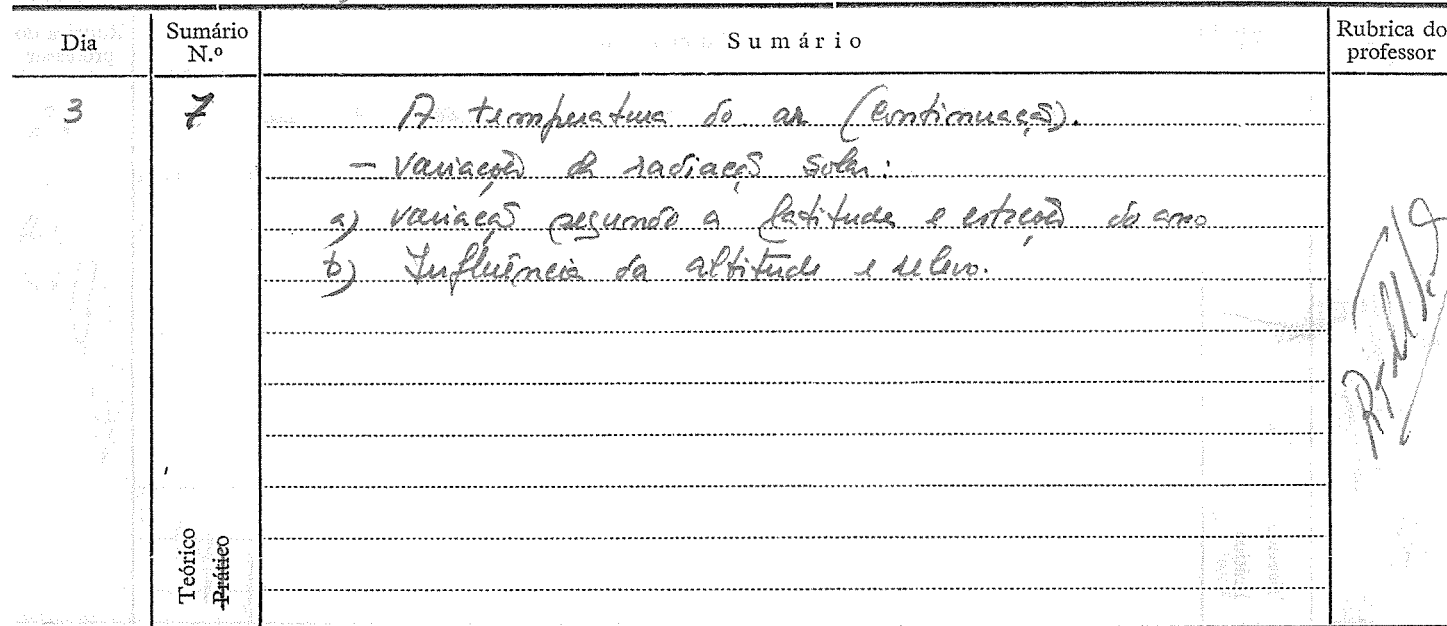 Dia
Sumário N.º
Sumário
Rubrica do professor
3
7
A temperatura do ar (continuação).
- Variações da radiação solar:
a) variação segundo a latitude e estações do ano
b) Influência da altitude e relevo.
Teórico
Prático